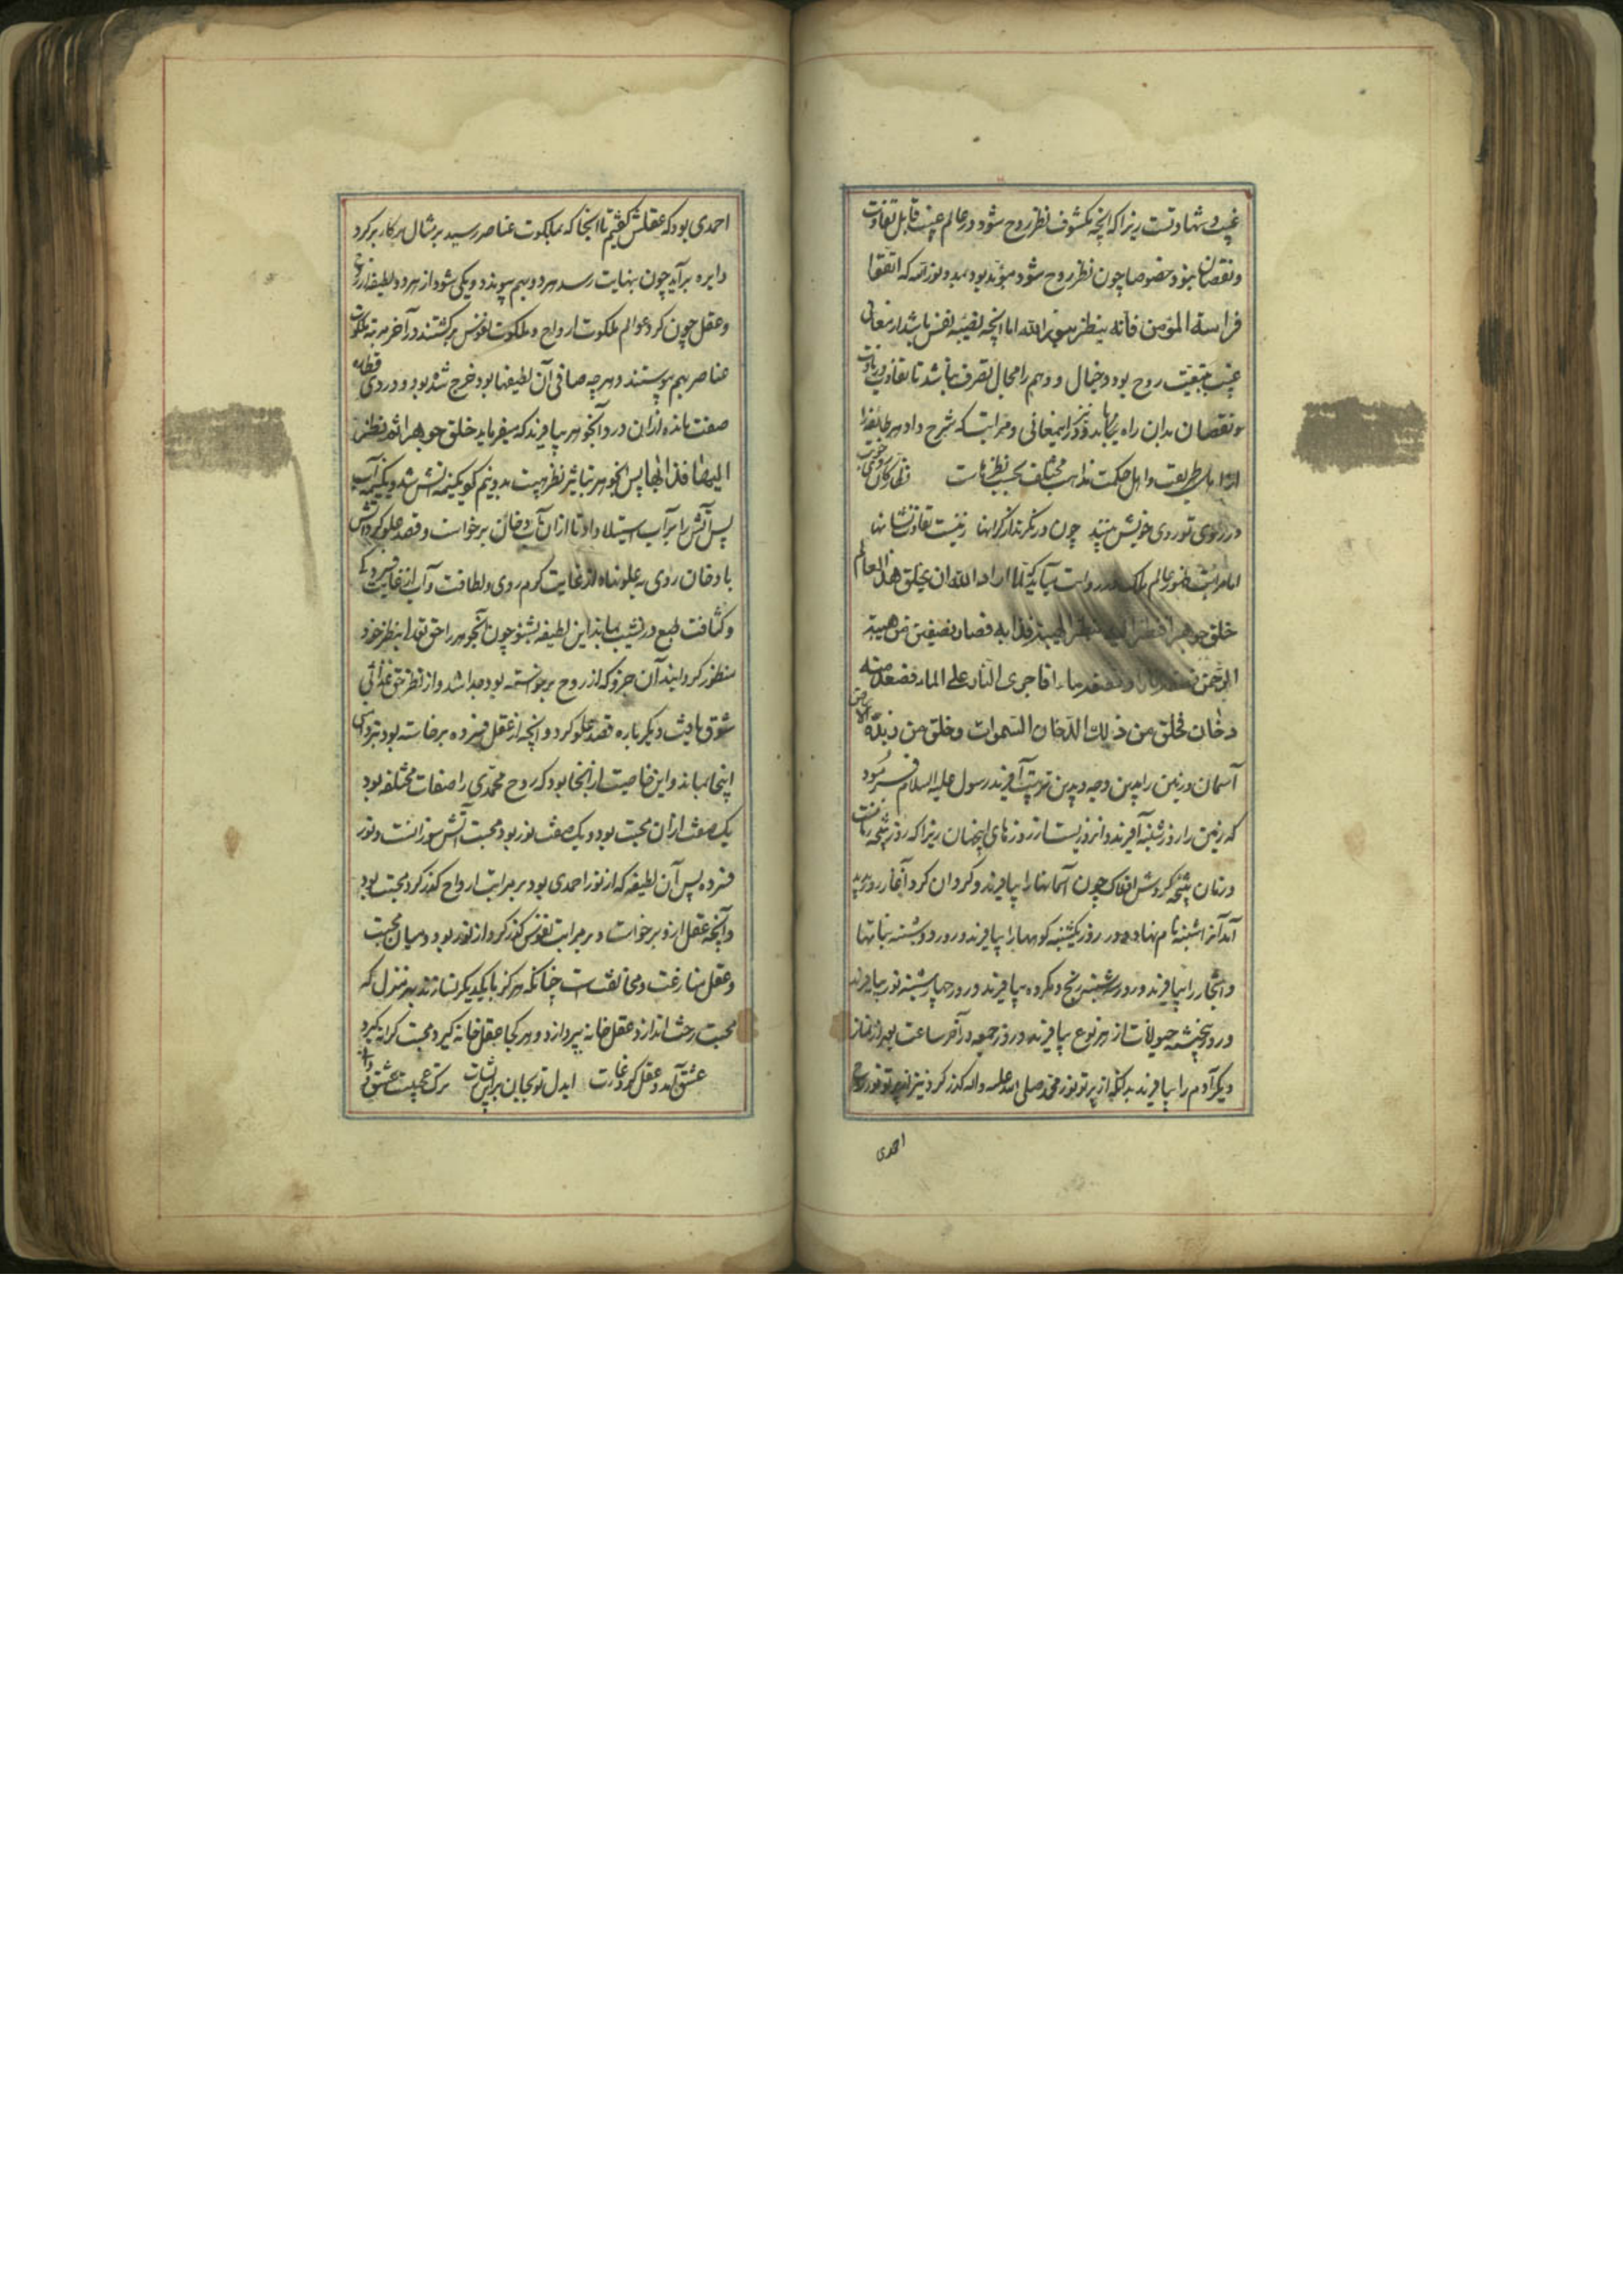 غیب و شهادتست زیرا که انچه مکشوف نظر روح شود در عالم غیب قابل تفاوت
و نقصان نبود خصوصا چون نظر روح شود مؤید بود بمدد نور الله که اتقوا
فراسة المؤمن فانه ینظر بنور الله اما انچه نصیبه نفس باشد از معانی
غیب بتبعیت روح بود و خیال و وهم را مجال تصرف باشد تا تفاوت زیادت
و نقصان بدان راه یابد و ذکر این معانی و مراتب که شرح داد هر طایفه را
ارباب طریقت و اهل حکمت مذاهب مختلف بحسب نظرهاست نظارکیان روی خوبت
در روی تو روی خویش بینند چون درنکرند از کرانها زینست تفاوت نشانها
اما مراتب ظهور عالم ملک در روایت میآید که لما اراد الله ان یخلق هذا العالم
خلق جوهرا فنظر الیه بنظر الهیبة فذابه فصار نصفین من هیبة
الرحمن نصفه نار و نصفه ماء فاجری النار علی الماء فصعد منه
دخان فخلق من ذلك الدخان السموات و خلق من زبده الارض
آسمان و زمین را بدین وجه و بدین ترتیب آفرید رسول علیه السلام فرمود
که زمین را روز شنبه آفرید و آنروز نیست از روزهای این جهان زیرا که روز نتیجه زمانست
و زمان نتیجه کردش افلاک چون آسمانها را بیافرید و کردان کرد آنجا روز پدید
آمد آنرا شنبه نام نهاد و در روز یکشنبه کوهها را بیافرید و در روز دوشنبه نباتها
و اشجار را بیافرید و در روز سه شنبه رنج و مکروه بیافرید و در روز چهارشنبه نور بیافرید
و در روز پنجشنبه حیوانات از هر نوع بیافرید و در روز جمعه در آخر ساعت بعد از نماز
دیکر آدم را بیافرید بدانکه از پرتو نور محمد صلی الله علیه و اله کذر کرد نیز از پرتو نور روح
احمدی
احمدی بود که عقلش کفتیم تا آنجا که بملکوت عناصر رسید بر مثال پرکار بر کرد
دایره برآید چون بنهایت رسد هر دو بهم پیوندد و یکی شود از هر دو لطیفه از روح
و عقل چون کرد عوالم ملکوت ارواح و ملکوت نفوس برکشتند در آخر مرتبه ملکوت
عناصر بهم پیوستند و هر چه صافی آن لطیفها بود خرج شده بود و دردی
صفت مانده از آن درد آنجوهر بیافرید که میفرماید خلق جوهرا ثم نظر
الیها فذابها پس آنجوهر بتاثیر نظر هیبت بدو نیم کو یکنیمه آتش شد و یکنیمه آب
پس آتش را بر آب استیلا داد تا از آن آب دخان برخواست و قصد علو کرد و آتش
با دخان روی بعلو نهاد از غایت کرم روی و لطافت و آب از غایت فسردکی
و کثافت طبع در نشیب بماند این لطیفه بشنو چون آنجوهر را حق تعالی بنظر خود
منظور کردانید آن جزو که از روح برخواسته بود جدا شد و از نظر حق غذائی
شوق یافت دیکر باره قصد علو کرد و آنچه از عقل فسرده برخاسته بود بتزو
اینجا بماند و این خاصیت از آنجا بود که روح محمدی را صفات مختلفه بود
یک صفت از آن محبت بود و یک صفت نور بود محبت آتش سوزانست و نور
فسرده پس آن لطیفه که از نور احمدی بود بر مراتب ارواح کذر کرد محبت بود
و آنچه عقل ازو برخواست و بر مراتب نفوس کذر کرد از نور بود و میان محبت
و عقل منازعت و مخالفتست چنانکه هرکز با یکدیکر نسازند بهر منزل که
محبت رخت اندازد عقل خانه بپردازد و هر کجا عقل خانه کیرد محبت کرانه کیرد
عشق آمد و عقل کرد غارت ایدل تو بجان بر این بشارت ترک عجبیست عشق دانی